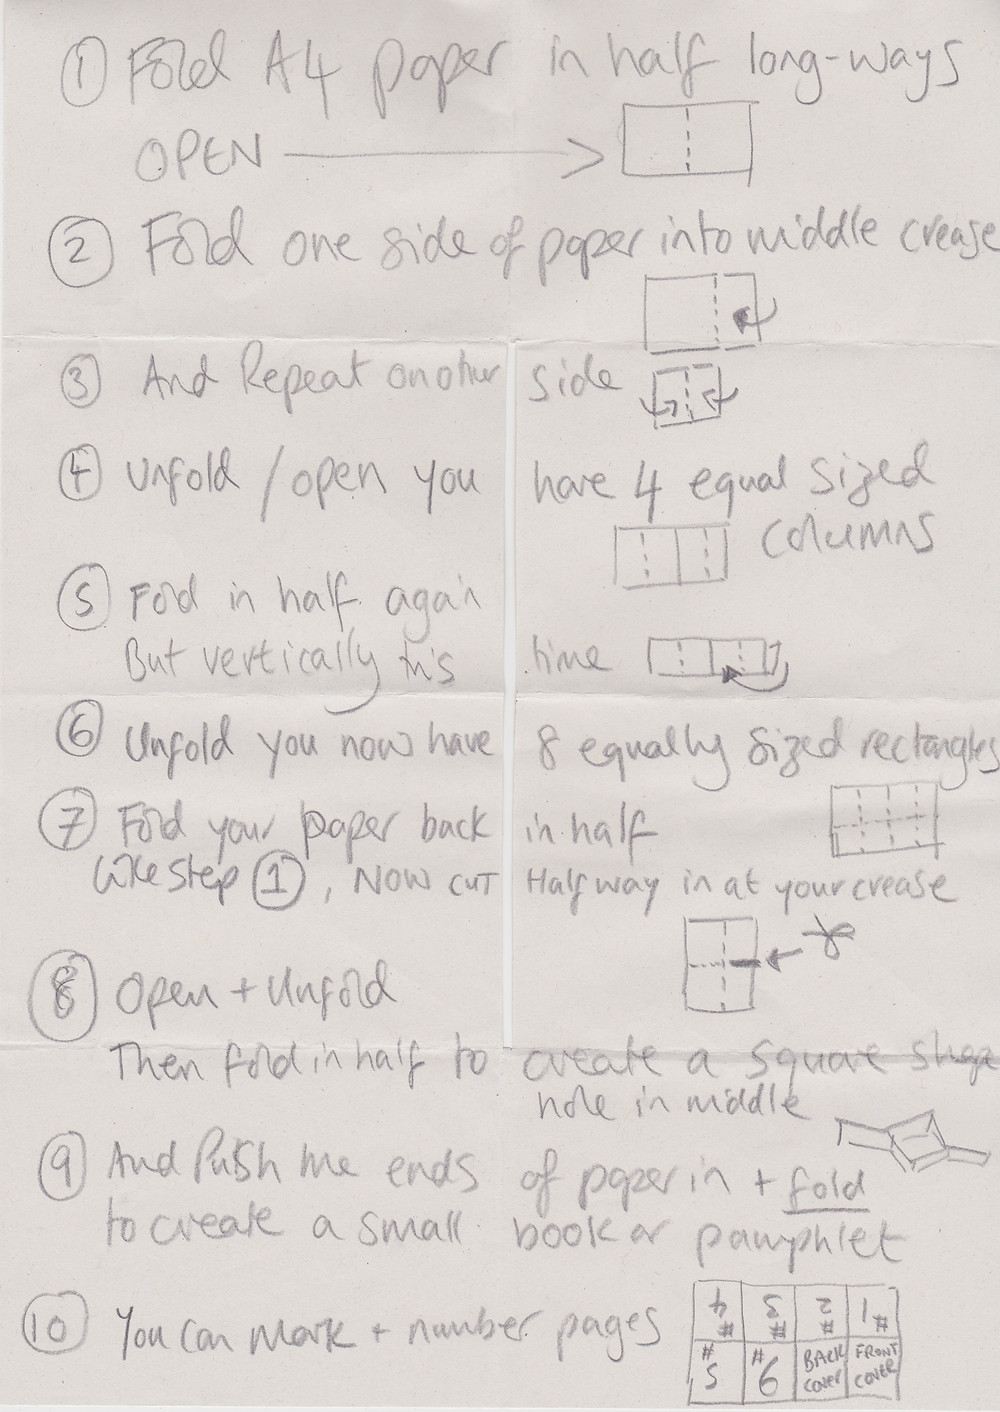 ① Fold A4 paper in half long-ways
OPEN
② Fold one side of paper into middle crease
③ And Repeat on other side
④ Unfold / open you have 4 equal sized
columns
⑤ Fold in half again
But vertically this time
⑥ Unfold you now have 8 equally sized rectangles
⑦ Fold your paper back in half
like step ①, Now CUT Half way in at your crease
⑧ Open + Unfold
Then fold in half to create a square shape
hole in middle
⑨ And Push the ends of paper in + fold
to create a small book or pamphlet
⑩ You can Mark + number pages
#4 #3 #2 1#
#5 #6 BACK COVER FRONT COVER